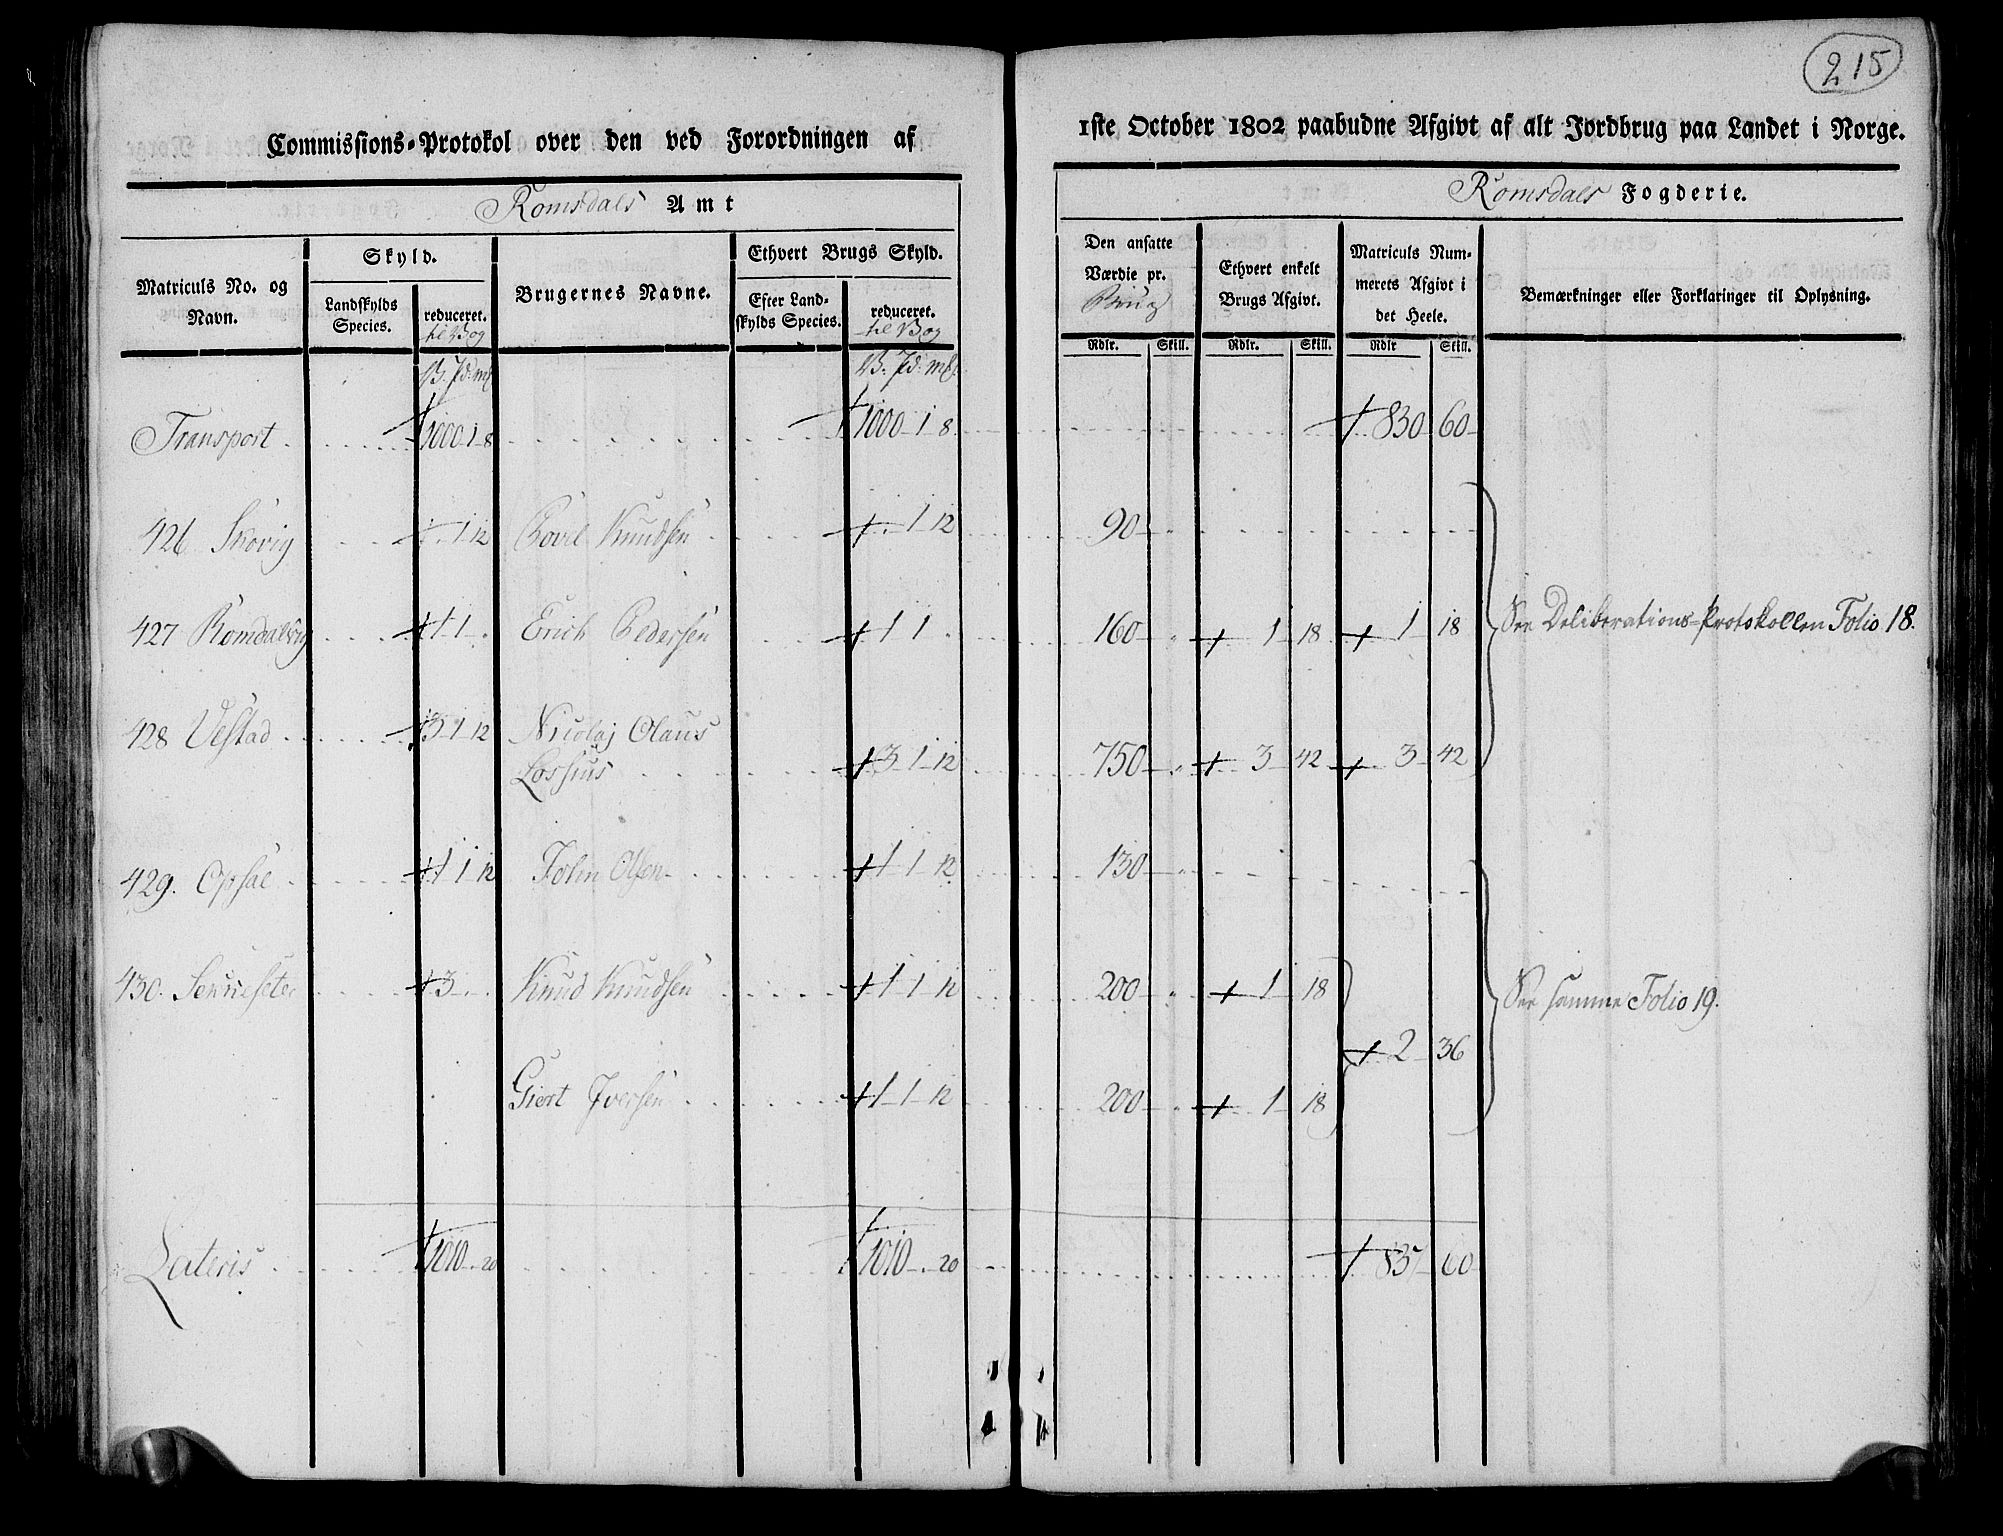 215
Commissions-Protokol over den ved Forordningen af
1ste October 1802 paabudne Afgivt af alt Jordbrug paa Landet i Norge.
Romsdals Amt
Romsdals Fogderie.
Matriculs No. og Navn.
Skyld.
Landskylds Species.
reduceret. til Vog
Brugernes Navne.
Ethvert Brugs Skyld.
Efter Landskylds Species.
reduceret. til Vog
Den ansatte Værdie pr. Brug
Ethvert enkelt Brugs Afgivt.
Matriculs Nummerets Afgivt i det Heele.
Bemærkninger eller Forklaringer til Oplysning.
Rdlr. Skill. Rdlr. Skill. Rdlr Skill.
V. Pd. mk. V. Pd. mk.
Transport 1000 1 8 1000 1 8 830 60
426 Skovig 1 12 Povel Knudsen 1 12 90
427 Romdalsvig 1 1 Erich Pedersen 1 1 160 1 18 1 18 See Deliberations-Protokollen Folio 18.
428 Vestad 3 1 12 Nicolaj Olaus
Lossius 3 1 12 750 3 42 3 42
429. Opsal 1 1 12 John Olsen 1 1 12 130
430. 3 Knud Knudsen 1 1 12 200 1 18 See samme Folio 19.
2 36
Giert Iversen 1 1 12 200 1 18
Lateris 1010 20 1010 20 837 60